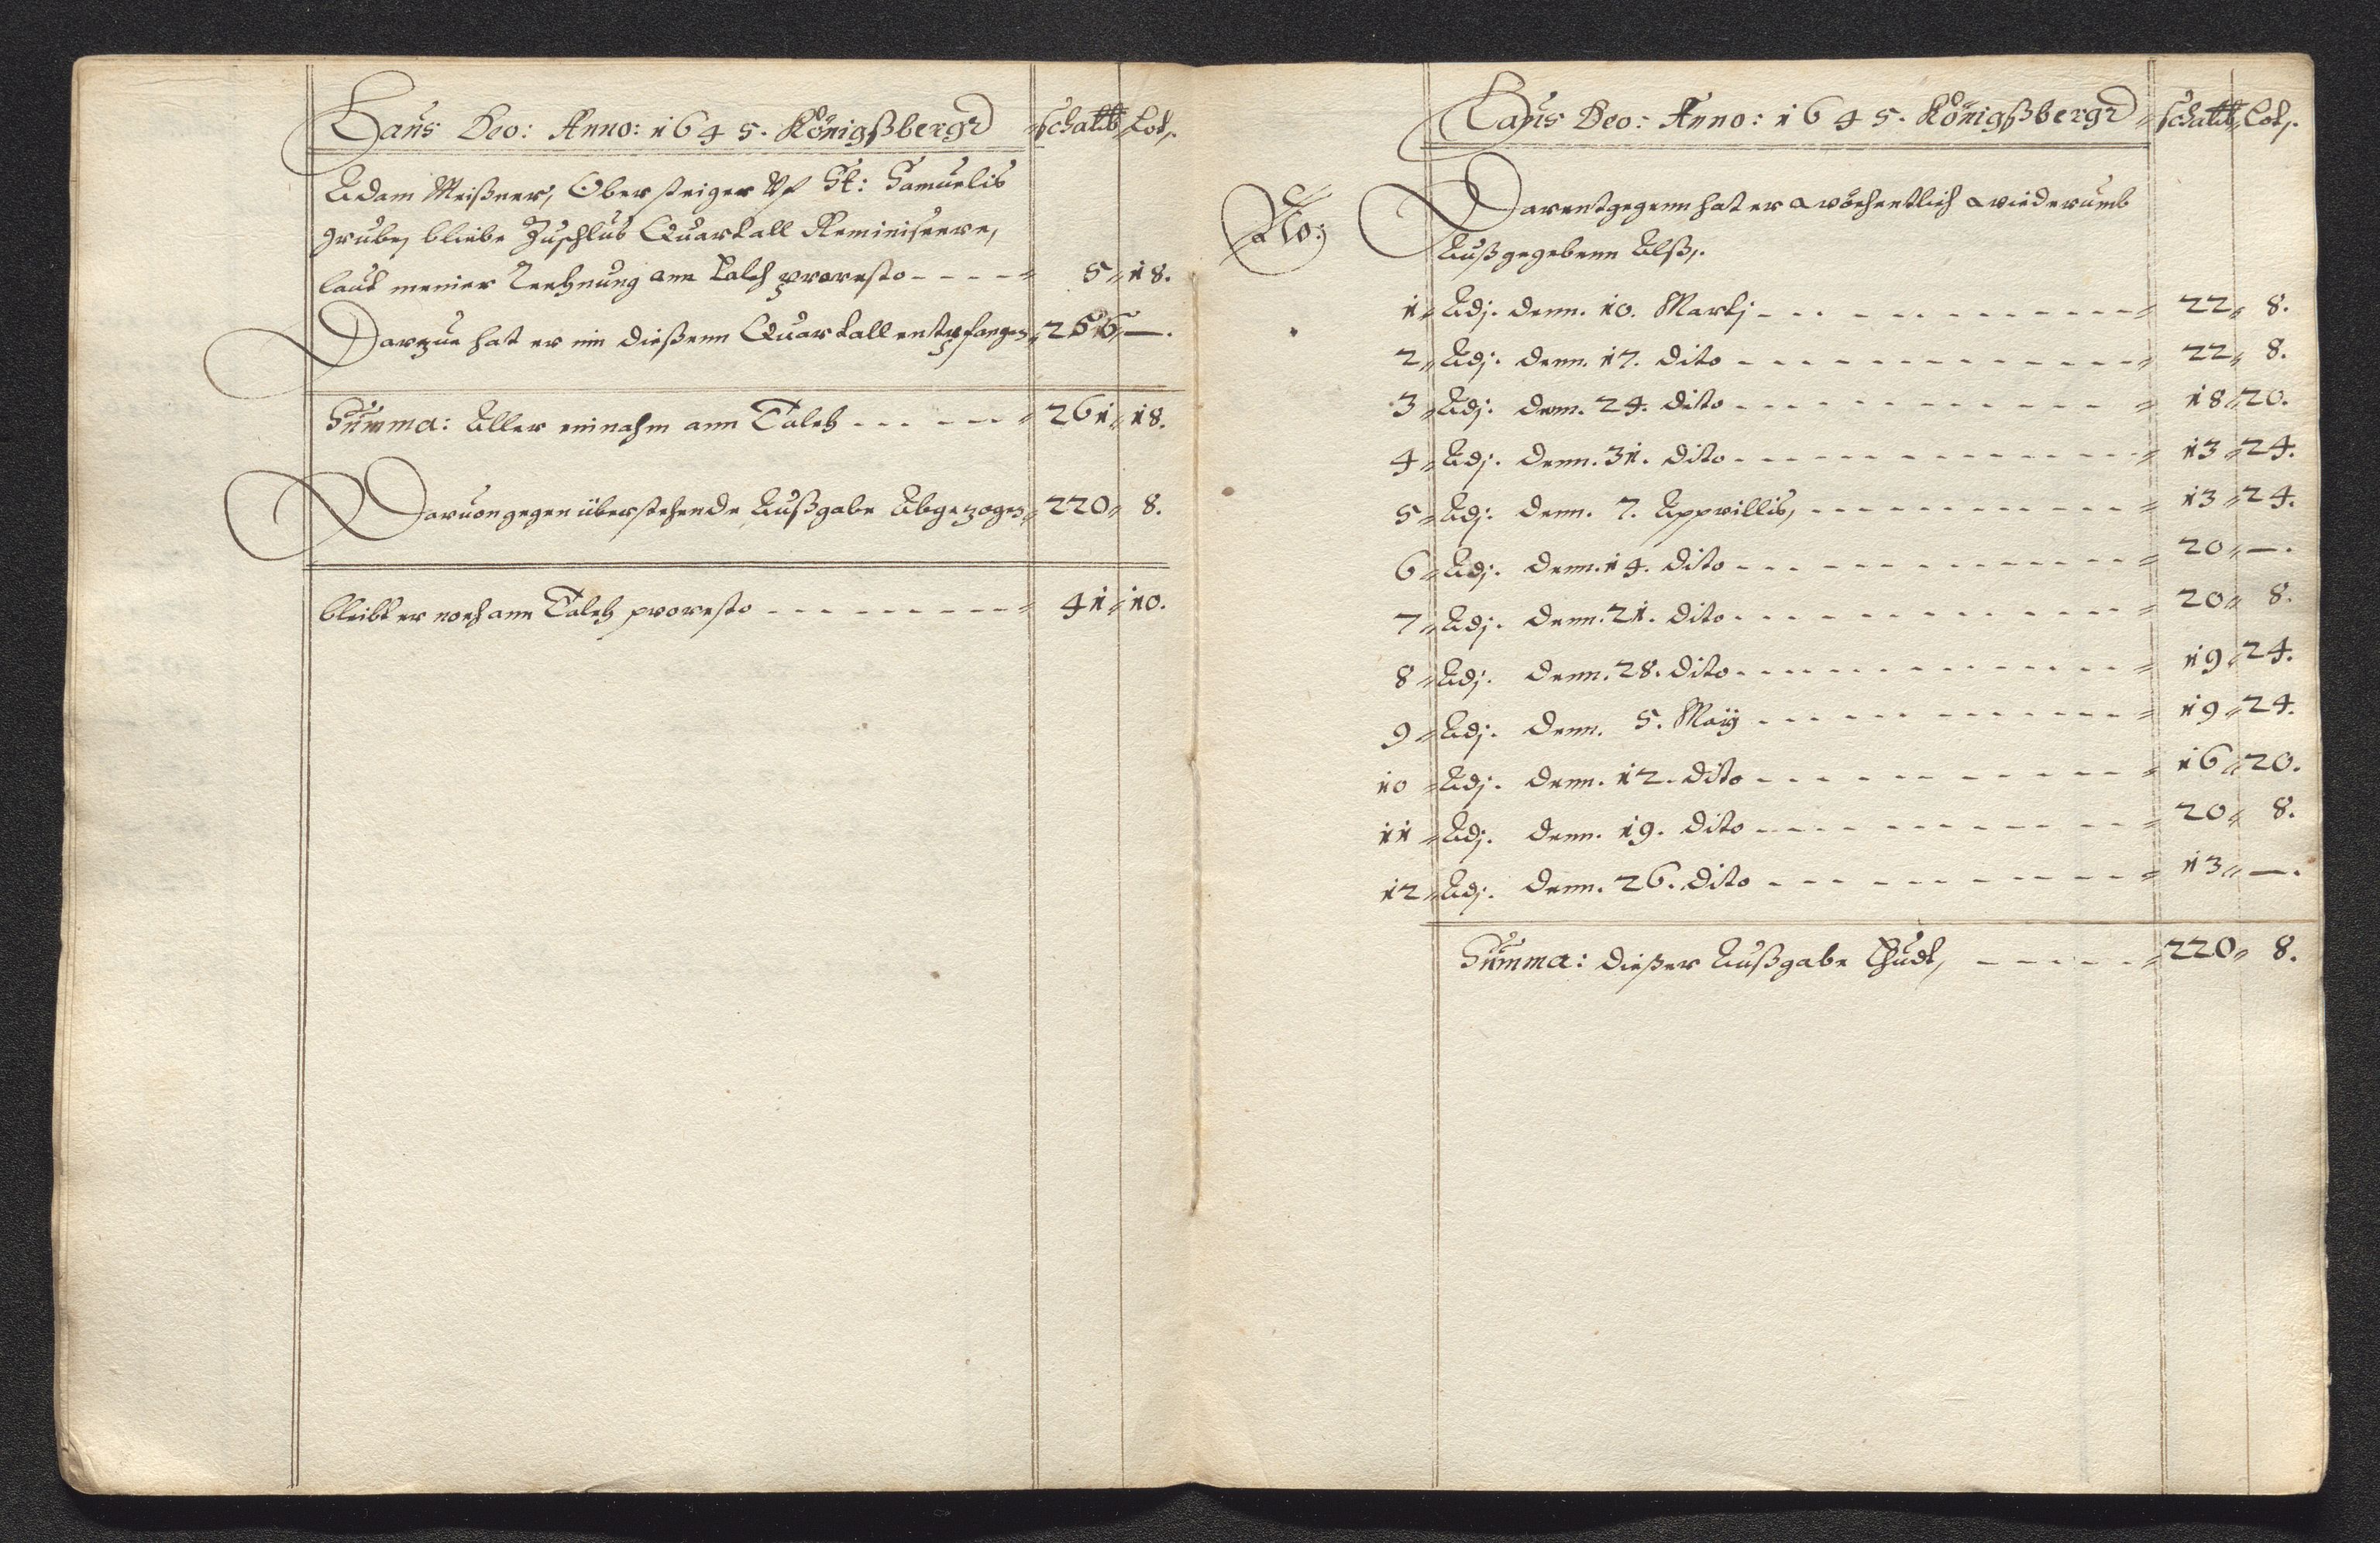 Laus Deo: Anno: 1645. Königßbergk schaltt Lot,.
Adam Meißner, Obersteiger Uf St: Samuelis
grube, bliebe Zuschlus Quartall Reminiscere,
laut meiner Rechnung ann Talch proresto - - - - 5 18.
Darzue hat er inn dießenn Quartall entpfangen, 256 —.
Summa: Aller einnahm ann Talch - - - - - 261 18.
Daruon gegen überstehende Außgabe Abgezogen, 220 8.
bleibt er noch ann Talch proresto - - - - - - - - - 41 10.
Laus Deo: Anno: 1645. Königßbergk schaltt Lot,.
No: Darentgegenn hat er wöchentlich wiederumb
Außgegebenn Alß,.
1 Adj. denn. 10. Martj - - - - - - - - - - - - 22 8.
2 Adj. denn. 17. dito - - - - - - - - - - - - - 22 8.
3 Adj. denn. 24. dito - - - - - - - - - - - - 18 20.
4 Adj. denn. 31. dito - - - - - - - - - - - - - 13 24.
5 Adj. denn. 7. Apprillis, - - - - - - - - - - - 13 24.
6 Adj. denn. 14. dito - - - - - - - - - - - - 20 —.
7 Adj. denn. 21. dito - - - - - - - - - - - - 20 8.
8 Adj. denn. 28. dito - - - - - - - - - - - - 19 24.
9 Adj. denn. 5. Maÿ - - - - - - - - - - - - 19 24.
10 Adj. denn. 12. dito - - - - - - - - - - - 16 20.
11 Adj. denn. 19. dito - - - - - - - - - - - 20 8.
12 Adj. denn. 26. dito - - - - - - - - - - - 13 —.
Summa: dießer Außgabe Thudt, - - - - - 220 8.